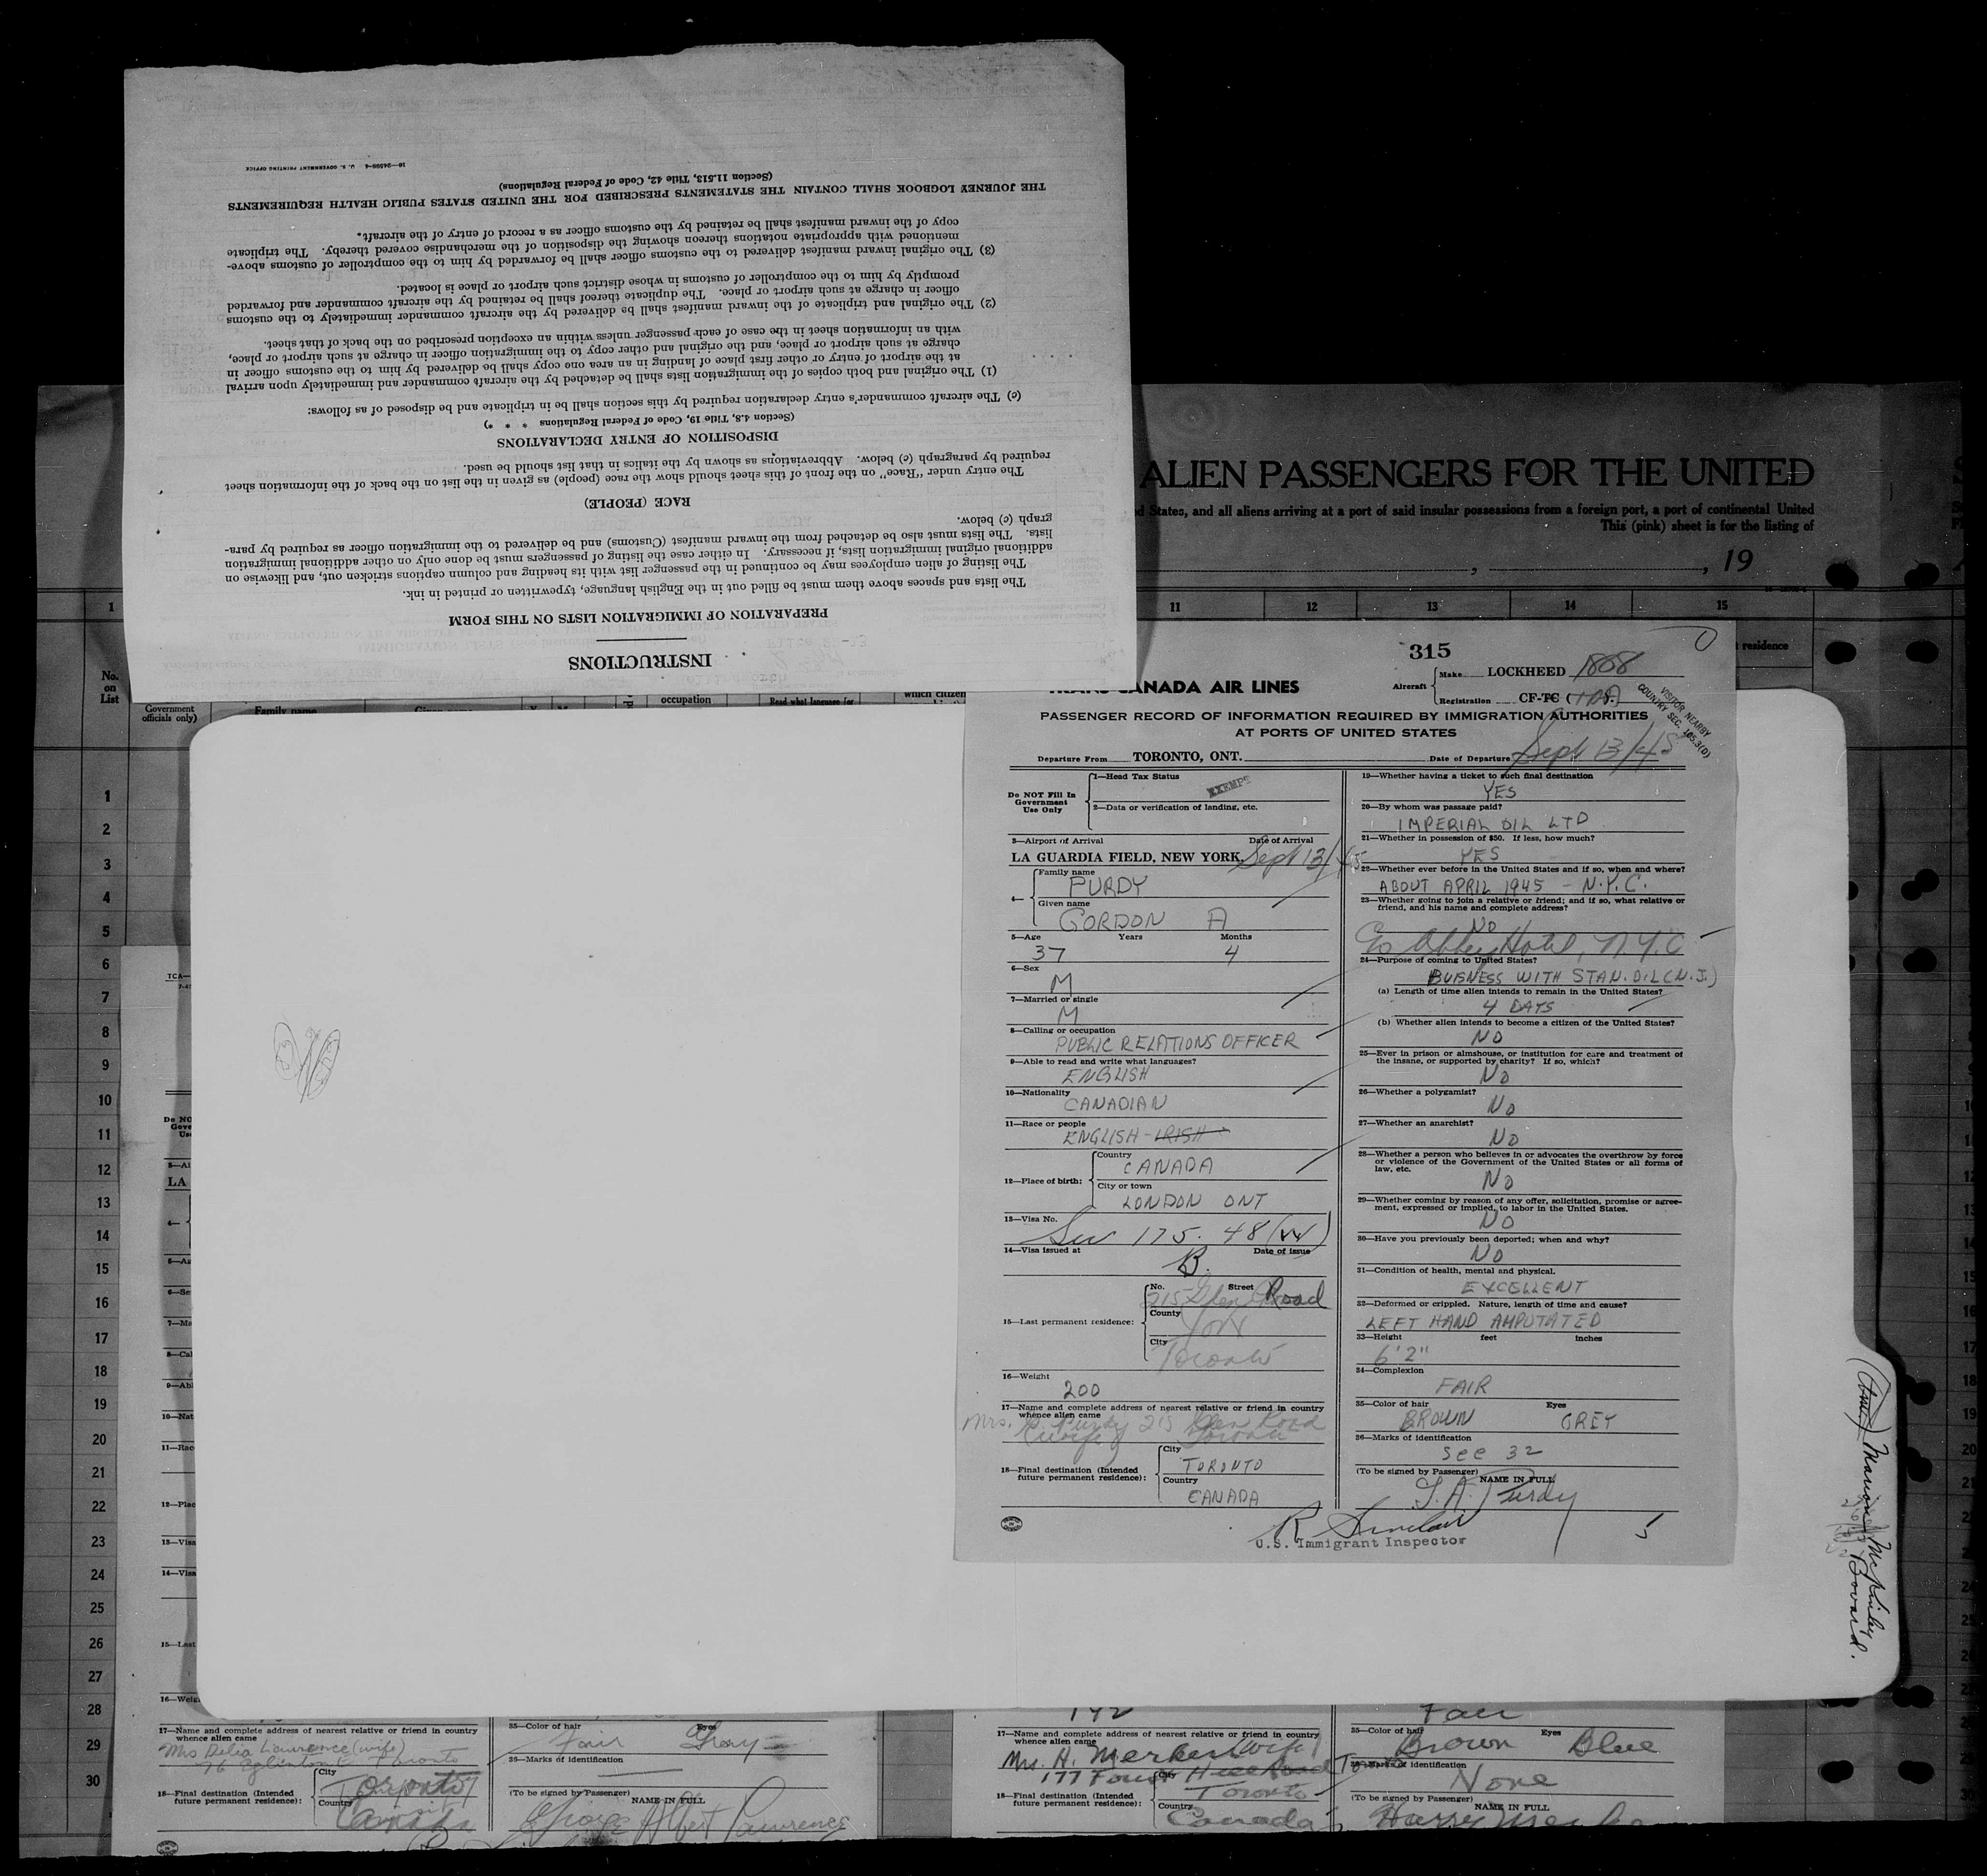 INSTRUCTIONS
PREPARATION OF IMMIGRATION LISTS ON THIS FORM
The lists and spaces above them must be filled out in the English language, typewritten or printed in ink.
The listing of alien employees may be continued in the passenger list with its heading and column captions stricken out, and likewise on
additional original immigration lists, if necessary. In either case the listing of passengers must be done only on other additional immigration
lists. The lists must also be detached from the inward manifest (Customs) and be delivered to the immigration officer as required by para-
graph (c) below.
RACE (PEOPLE)
The entry under "Race" on the front of this sheet should show the race (people) as given in the list on the back of the information sheet
required by paragraph (c) below. Abbreviations as shown by the italics in that list should be used.
DISPOSITION OF ENTRY DECLARATIONS
(Section 4.8, Title 19, Code of Federal Regulations * * *)
(c) The aircraft commander's entry declaration required by this section shall be in triplicate and be disposed of as follows:
(1) The original and both copies of the immigration lists shall be detached by the aircraft commander and immediately upon arrival
at the airport of entry or other first place of landing in an area one copy shall be delivered by him to the customs officer in
charge at such airport or place, and the original and other copy to the immigration officer in charge at such airport or place,
with an information sheet in the case of each passenger unless within an exception prescribed on the back of that sheet.
(2) The original and triplicate of the inward manifest shall be delivered by the aircraft commander immediately to the customs
officer in charge at such airport or place. The duplicate thereof shall be retained by the aircraft commander and forwarded
promptly by him to the comptroller of customs in whose district such airport or place is located.
(3) The original inward manifest delivered to the customs officer shall be forwarded by him to the comptroller of customs above-
mentioned with appropriate notations thereon showing the disposition of the merchandise covered thereby. The triplicate
copy of the inward manifest shall be retained by the customs officer as a record of entry of the aircraft.
THE JOURNEY LOGBOOK SHALL CONTAIN THE STATEMENTS PRESCRIBED FOR THE UNITED STATES PUBLIC HEALTH REQUIREMENTS
(Section 11.513, Title 42, Code of Federal Regulations)
16—24598-4 U. S. GOVERNMENT PRINTING OFFICE
ALIEN PASSENGERS FOR THE UNITED
d States, and all aliens arriving at a port of said insular possessions from a foreign port, a port of continental United
This (pink) sheet is for the listing of
, , 19
1 11 12 13 14 15
residence
No.
on
List
Government
officials only)
Family name
occupation
Read what language [or
which citizen
315
CANADA AIR LINES
Aircraft Make LOCKHEED 1808
Registration CF-TC
VISITOR NEARBY
COUNTRY SEC. 165.3(D)
PASSENGER RECORD OF INFORMATION REQUIRED BY IMMIGRATION AUTHORITIES
AT PORTS OF UNITED STATES
Departure From TORONTO, ONT. Date of Departure Sept 13/45
Do NOT Fill In
Government
Use Only
1—Head Tax Status
EXEMPT
2—Data or verification of landing, etc.
3—Airport of Arrival Date of Arrival
LA GUARDIA FIELD, NEW YORK. Sept 13/45
4— Family name
PURDY
Given name
GORDON A
5—Age Years Months
37 4
6—Sex
M
7—Married or single
M
8—Calling or occupation
PUBLIC RELATIONS OFFICER
9—Able to read and write what languages?
ENGLISH
10—Nationality
CANADIAN
11—Race or people
ENGLISH - IRISH
12—Place of birth: Country
CANADA
City or town
LONDON ONT
13—Visa No.
Sec 175.48(W)
14—Visa issued at Date of issue
B.
15—Last permanent residence: No. Street
215 Glen Road
County
York
City
Toronto
16—Weight
200
17—Name and complete address of nearest relative or friend in country
whence alien came
Mrs. G. Purdy 215 Glen Road
(wife) Toronto
18—Final destination (Intended
future permanent residence):
City
TORONTO
Country
CANADA
19—Whether having a ticket to such final destination
YES
20—By whom was passage paid?
IMPERIAL OIL LTD
21—Whether in possession of $50. If less, how much?
YES
22—Whether ever before in the United States and if so, when and where?
ABOUT APRIL 1945 - N.Y.C.
23—Whether going to join a relative or friend; and if so, what relative or
friend, and his name and complete address?
NO
Abbey Hotel, N.Y.C
24—Purpose of coming to United States?
BUISNESS WITH STAN. OIL (N.J.)
(a) Length of time alien intends to remain in the United States?
4 DAYS
(b) Whether alien intends to become a citizen of the United States?
NO
25—Ever in prison or almshouse, or institution for care and treatment of
the insane, or supported by charity? If so, which?
NO
26—Whether a polygamist?
NO
27—Whether an anarchist?
NO
28—Whether a person who believes in or advocates the overthrow by force
or violence of the Government of the United States or all forms of
law, etc.
NO
29—Whether coming by reason of any offer, solicitation, promise or agree-
ment, expressed or implied, to labor in the United States.
NO
30—Have you previously been deported; when and why?
NO
31—Condition of health, mental and physical.
EXCELLENT
32—Deformed or crippled. Nature, length of time and cause?
LEFT HAND AMPUTATED
33—Height feet inches
6'2"
34—Complexion
FAIR
35—Color of hair Eyes
BROWN GREY
36—Marks of identification
See 32
(To be signed by Passenger) NAME IN FULL
G. A. Purdy
R Sinclair
U.S. Immigrant Inspector
Marion McKinley
Bovard.
1
2
3
4
5
6
7
8
9
10
11
12
13
14
15
16
17
18
19
20
21
22
23
24
25
26
27
28
29
30
17—Name and complete address of nearest relative or friend in country
whence alien came
Mrs Delia Lawrence (wife)
76 Eglinton Toronto
18—Final destination (Intended
future permanent residence):
City
Toronto
Country
Canada
35—Color of hair Eyes
Fair Gray
36—Marks of identification
(To be signed by Passenger) NAME IN FULL
George Albert Lawrence
142
17—Name and complete address of nearest relative or friend in country
whence alien came
Mrs. H. Merker (wife)
177 Forest Hill Road Toronto
18—Final destination (Intended
future permanent residence):
City
Toronto
Country
Canada
Fair
35—Color of hair Eyes
Brown Blue
36—Marks of identification
None
(To be signed by Passenger) NAME IN FULL
Harry